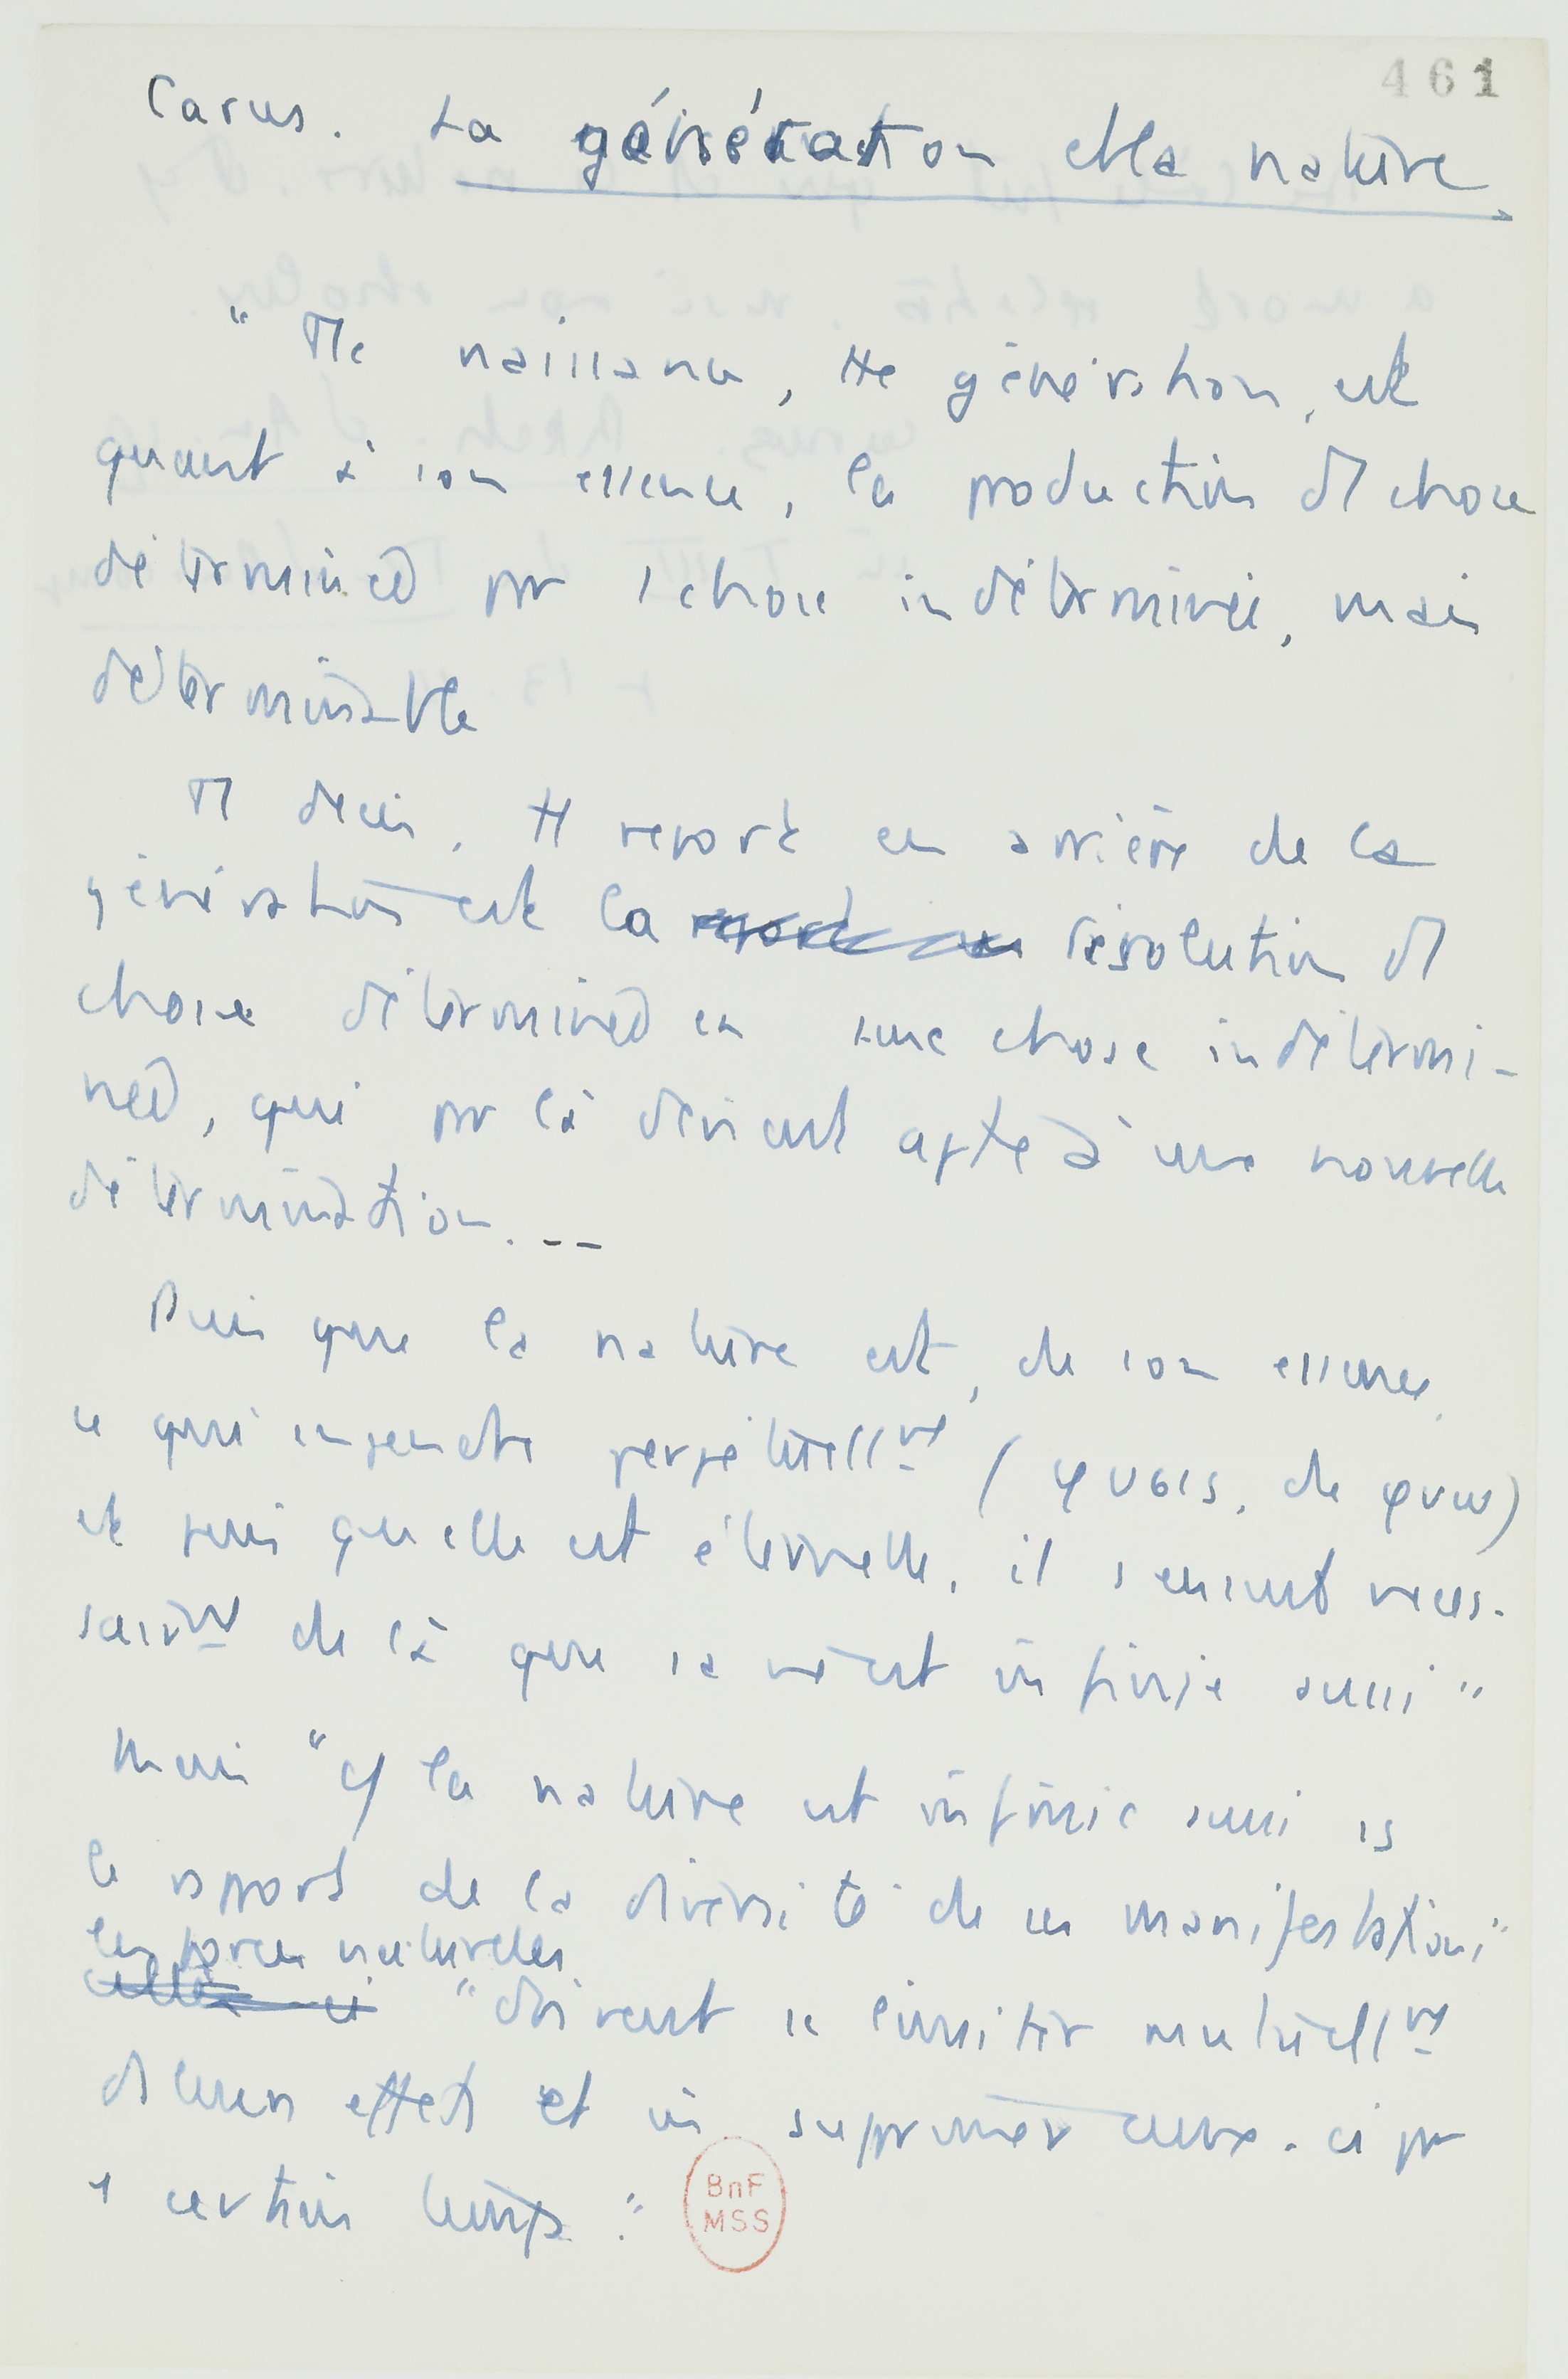 461
Carus. La génération et la nature
" Tte naissance, tte génération, est
quant à son essence, la production d'1 chose
déterminée par 1 chose indéterminée, mais
déterminable
Tt decès, tt report en arrière de la
génération est la résolution d'1
chose déterminée en une chose indétermi-
née, qui par là devient apte à une nouvelle
détermination. --
Puis que la nature est, de son essence,
ce qui engendre perpétuellmt (φυσις, de φυω)
et puis qu'elle est éternelle, il s'ensuit néces-
sairmt de là que sa vie est infinie aussi "
Mais " la nature est infinie aussi ss
le rapport de la diversité de ses manifestations"
les forces naturelles
"doivent se limiter mutuellmt
ds leurs effets et in supprimer ceux-ci pr
1 certain temps."
BnF
MSS